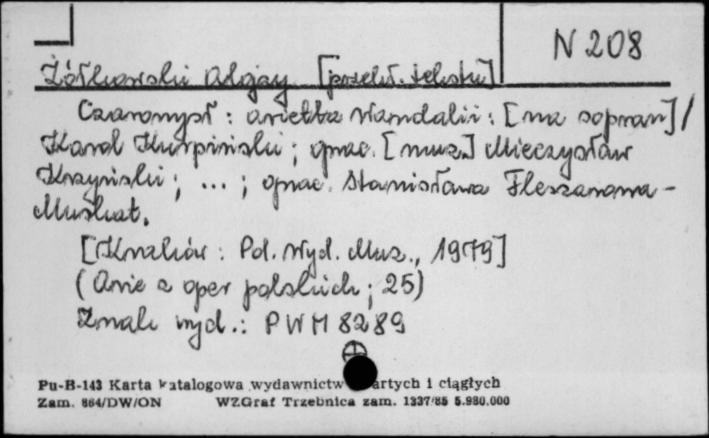 N 208
Żółkowski Alojzy [przekł. tekstu]
Czaromysł : arietta Wandalii : [na sopran] /
Karol Kurpiński ; oprac. [muz.] Mieczysław
Krzyński ; ... ; oprac. Stanisława Fleszarowa-
Muskat.
[Kraków : Pol. Wyd. Muz., 1979]
(Arie z oper polskich ; 25)
Znak wyd.: PWM 8289
Pu-B-143 Karta katalogowa wydawnictw zwartych i ciągłych
Zam. 864/DW/ON WZGraf Trzebnica zam. 1337/85 5.980.000